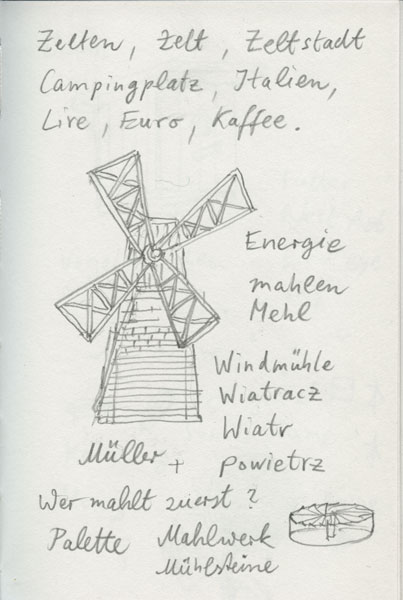 Zelten, Zelt, Zeltstadt
Campingplatz, Italien,
Lire, Euro, Kaffee.
Energie
mahlen
Mehl
Windmühle
Wiatracz
Wiatr
Müller + Powietrz
Wer mahlt zuerst?
Palette Mahlwerk
Mühlsteine